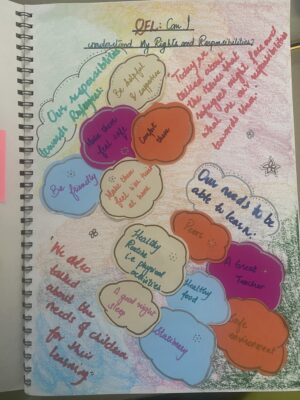 QFL: Can I
understand My Rights and Responsibilities?
Our responsibilities
towards Refugees:
Be helpful
& supportive
Make them
feel safe
Comfort
them
Today we
talked about
the issues that
refugees might face and
what are our responsibilities
towards them.
Be friendly
Make them
feel
at home
Our needs to be
able to learn:
Peers
Healthy
Routine
i.e physical
activities
A Great
Teacher
Healthy
food
A good night
sleep
Safe
environment
Stationary
'We also
talked
about the
needs of children
for their
learning'